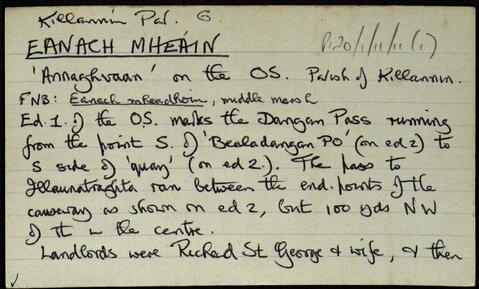 Killannin Par. G.
EANACH MHEÁIN
P120/1/11/11 (1)
'Annaghvaan' on the OS. Parish of Killannin.
FNB: Eanach mheadhoin, middle marsh
Ed. 1. of the O.S. marks the Dangan Pass running
from the point S. of 'Bealadangan PO' (on ed 2) to
S side of 'quay' (on ed 2). The pass to
Illaunatraghta ran between the end-points of the
causeway as shown on ed 2, but 100 yds NW
of it in the centre.
Landlords were Richard St George & wife, & then